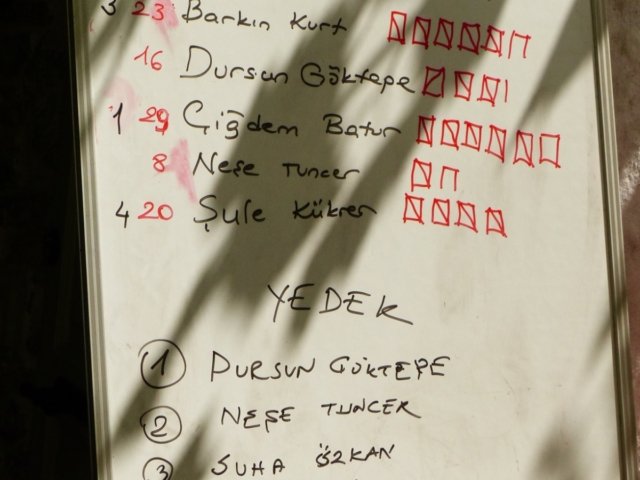 3 23 Barkın Kurt
16 Dursun Göktepe
1 29 Çiğdem Batur
8 Neşe Tuncer
4 20 Şule Kükrer
YEDEK
1 DURSUN GÖKTEPE
2 NEŞE TUNCER
3 SUHA ÖZKAN